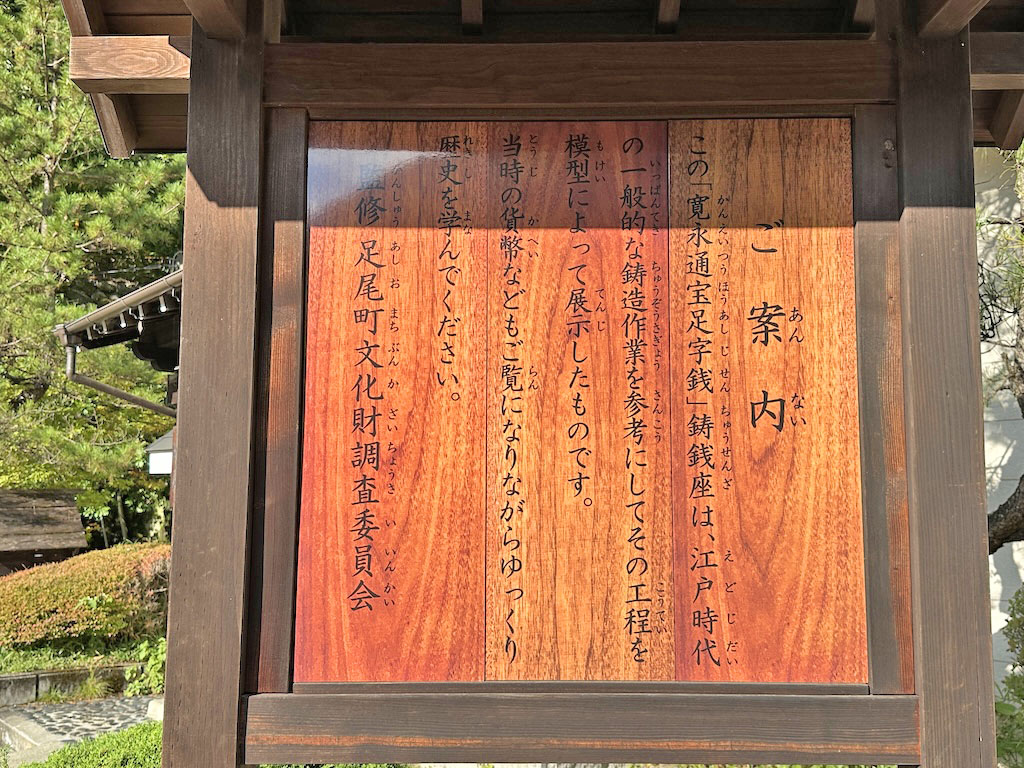 ご案内
この「寛永通宝足字銭」鋳銭座は、江戸時代
の一般的な鋳造作業を参考にしてその工程を
模型によって展示したものです。
当時の貨幣などもご覧になりながらゆっくり
歴史を学んでください。
監修 足尾町文化財調査委員会